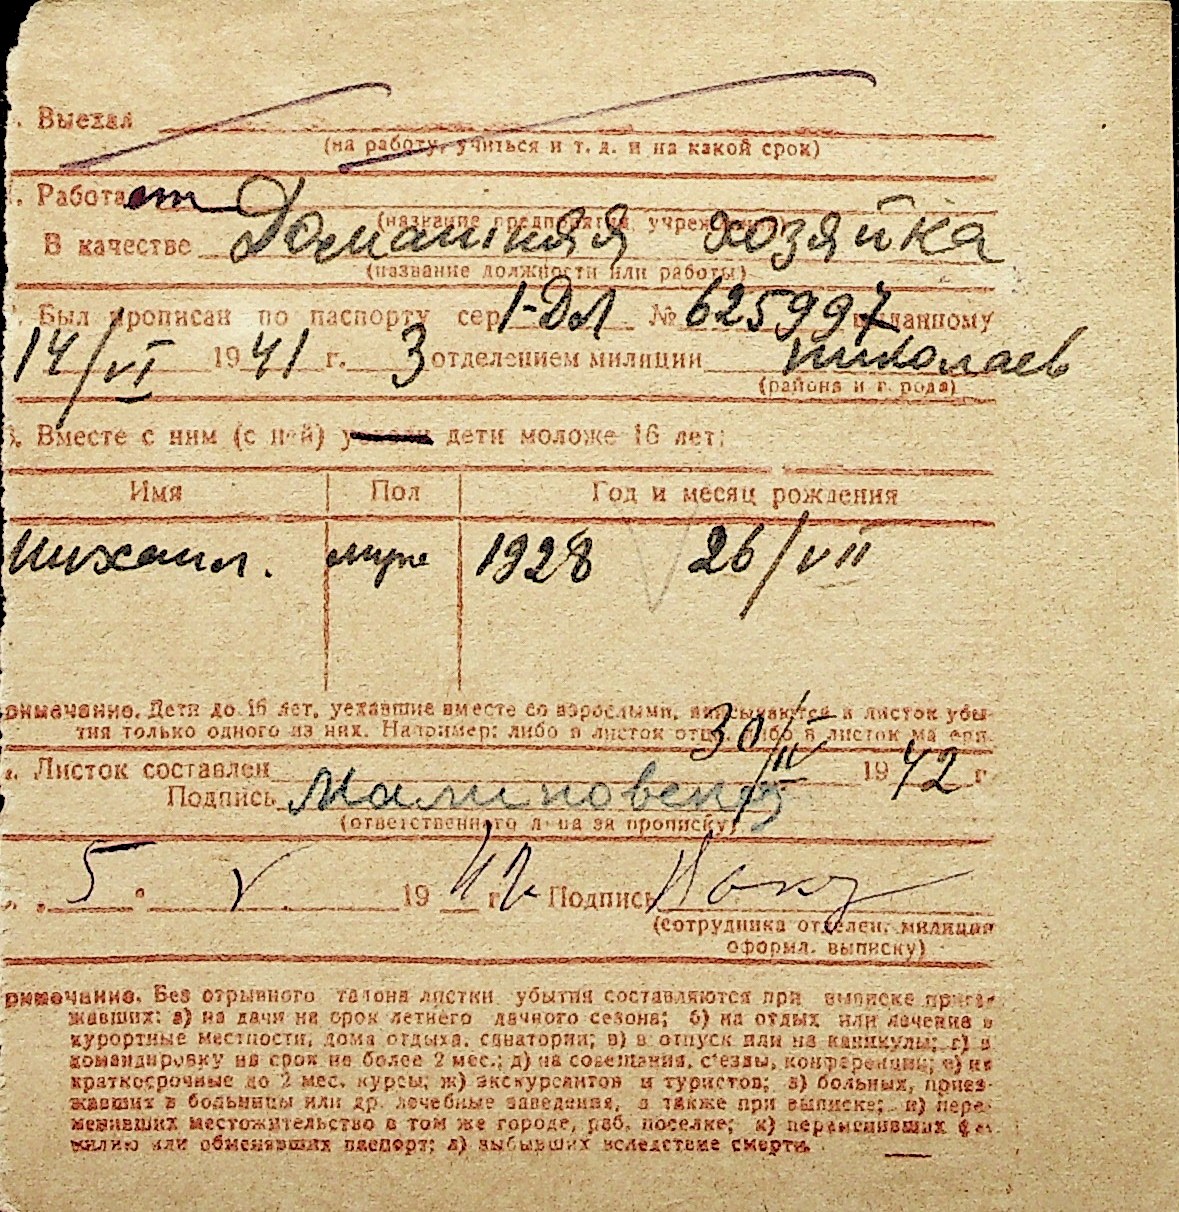 . Выехал
(на работу, учиться и т. д. и на какой срок)
. Работает
(название предприятия, учреждения)
В качестве Домашняя хозяйка
(название должности или работы)
. Был прописан по паспорту сер. I-ДЛ № 625997 выданному
14/VI 1941 г. 3 отделением милиции Николаев
(района и города)
. Вместе с ним (с ней) уехали дети моложе 16 лет:
Имя Пол Год и месяц рождения
Михаил. муж 1928 26/VII
римечание. Дети до 16 лет, уехавшие вместе со взрослыми, вписываются в листок убы-
тия только одного из них. Например: либо в листок отца, либо в листок матери.
. Листок составлен 30/IV 1942 г.
Подпись
(ответственного лица за прописку)
5 V 1942 г. Подпись
(сотрудника отделен. милиции
оформл. выписку)
римечание. Без отрывного талона листки убытия составляются при выписке приез-
жавших: а) на дачи на срок летнего дачного сезона; б) на отдых или лечение в
курортные местности, дома отдыха, санатории; в) в отпуск или на каникулы; г) в
командировку на срок не более 2 мес.; д) на совещания, с'езды, конференции; е) на
краткосрочные до 2 мес. курсы; ж) экскурсантов и туристов; з) больных, приез-
жавших в больницы или др. лечебные заведения, а также при выписке; и) пере-
менивших местожительство в том же городе, раб. поселке; к) переменивших фа-
милию или обменявших паспорт; л) выбывших вследствие смерти.